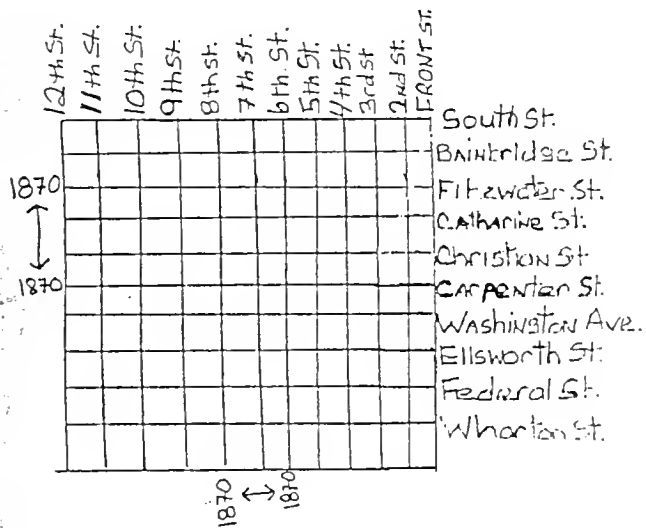 12th St.
11th St.
10th St.
9th St.
8th St.
7th St.
6th St.
5th St.
4th St.
3rd St
2nd St.
FRONT ST.
South St.
Bainbridge St.
Fitzwater St.
Catharine St.
Christian St
Carpenter St.
Washington Ave.
Ellsworth St.
Federal St.
Wharton St.
1870
1870
1870
1870